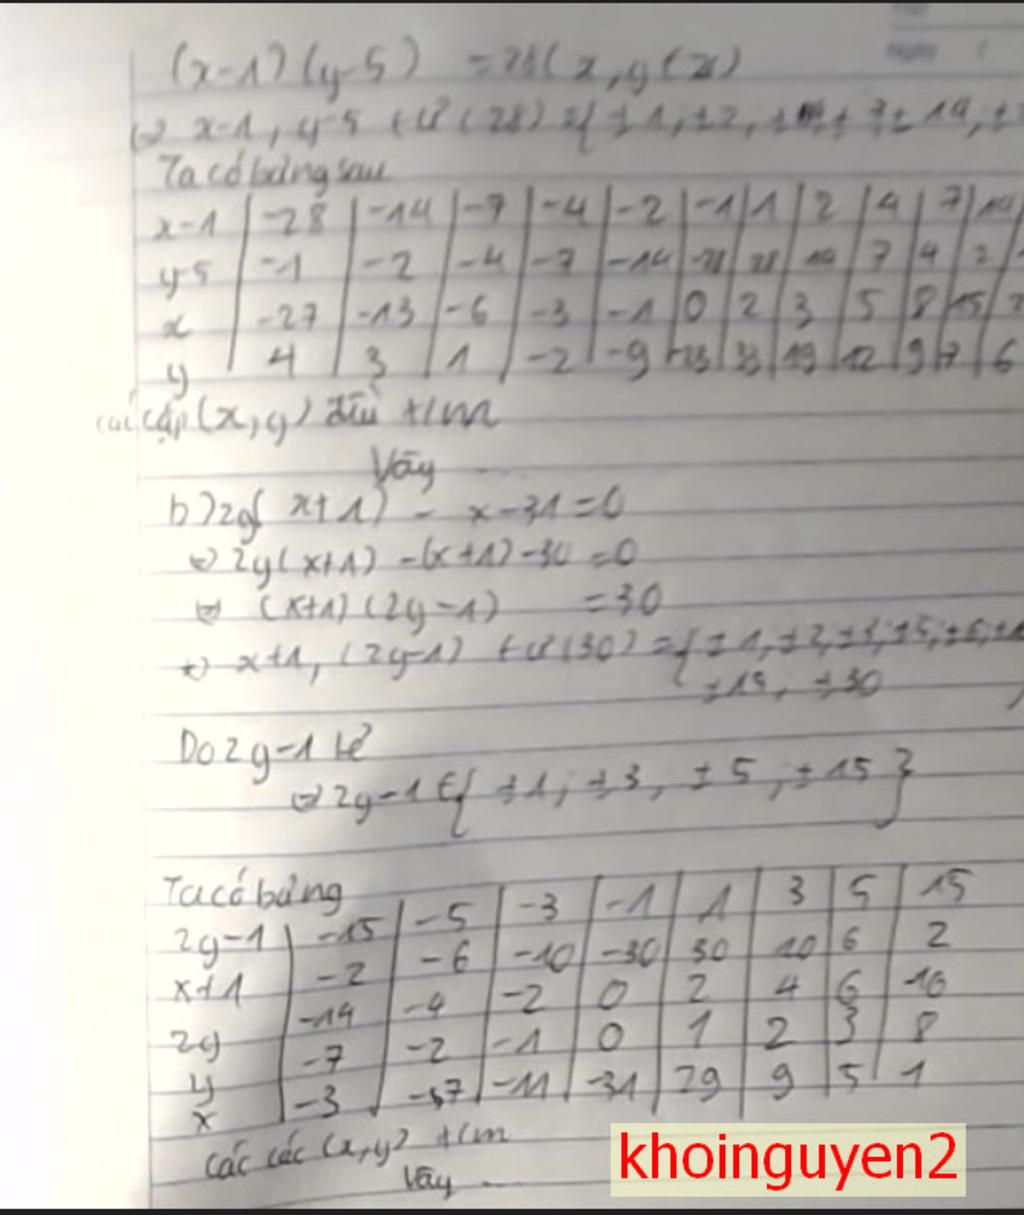 (x-1)(y-5) = 28 (x,y ∈ Z)
=> x-1, y-5 ∈ Ư(28) = { ±1, ±2, ±4, ±7, ±14, ±
Ta có bảng sau
x-1 | -28 | -14 | -7 | -4 | -2 | -1 | 1 | 2 | 4 | 7 | 14
y-5 | -1 | -2 | -4 | -7 | -14 | -28 | 28 | 14 | 7 | 4 | 2
x | -27 | -13 | -6 | -3 | -1 | 0 | 2 | 3 | 5 | 8 | 15 | 2
y | 4 | 3 | 1 | -2 | -9 | -23 | 33 | 19 | 12 | 9 | 7 | 6
các cặp (x,y) đều t/m
Vậy ...
b) 2y(x+1) - x-31=0
=> 2y(x+1) -(x+1)-30 =0
=> (x+1)(2y-1) =30
=> x+1, (2y-1) ∈ Ư(30) = { ±1, ±2, ±3, ±5, ±6, ±1
±15, ±30
Do 2y-1 lẻ
=> 2y-1 ∈ { ±1; ±3; ±5; ±15 }
Ta có bảng
2y-1 | -15 | -5 | -3 | -1 | 1 | 3 | 5 | 15
x+1 | -2 | -6 | -10 | -30 | 30 | 10 | 6 | 2
2y | -14 | -4 | -2 | 0 | 2 | 4 | 6 | 16
y | -7 | -2 | -1 | 0 | 1 | 2 | 3 | 8
x | -3 | -7 | -11 | -31 | 29 | 9 | 5 | 1
các các (x,y) t/m
Vậy ...
khoinguyen2